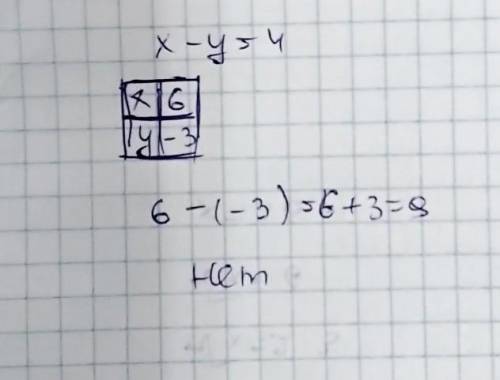 x - y = 4
x 6
y -3
6 - (-3) = 6 + 3 = 9
нет